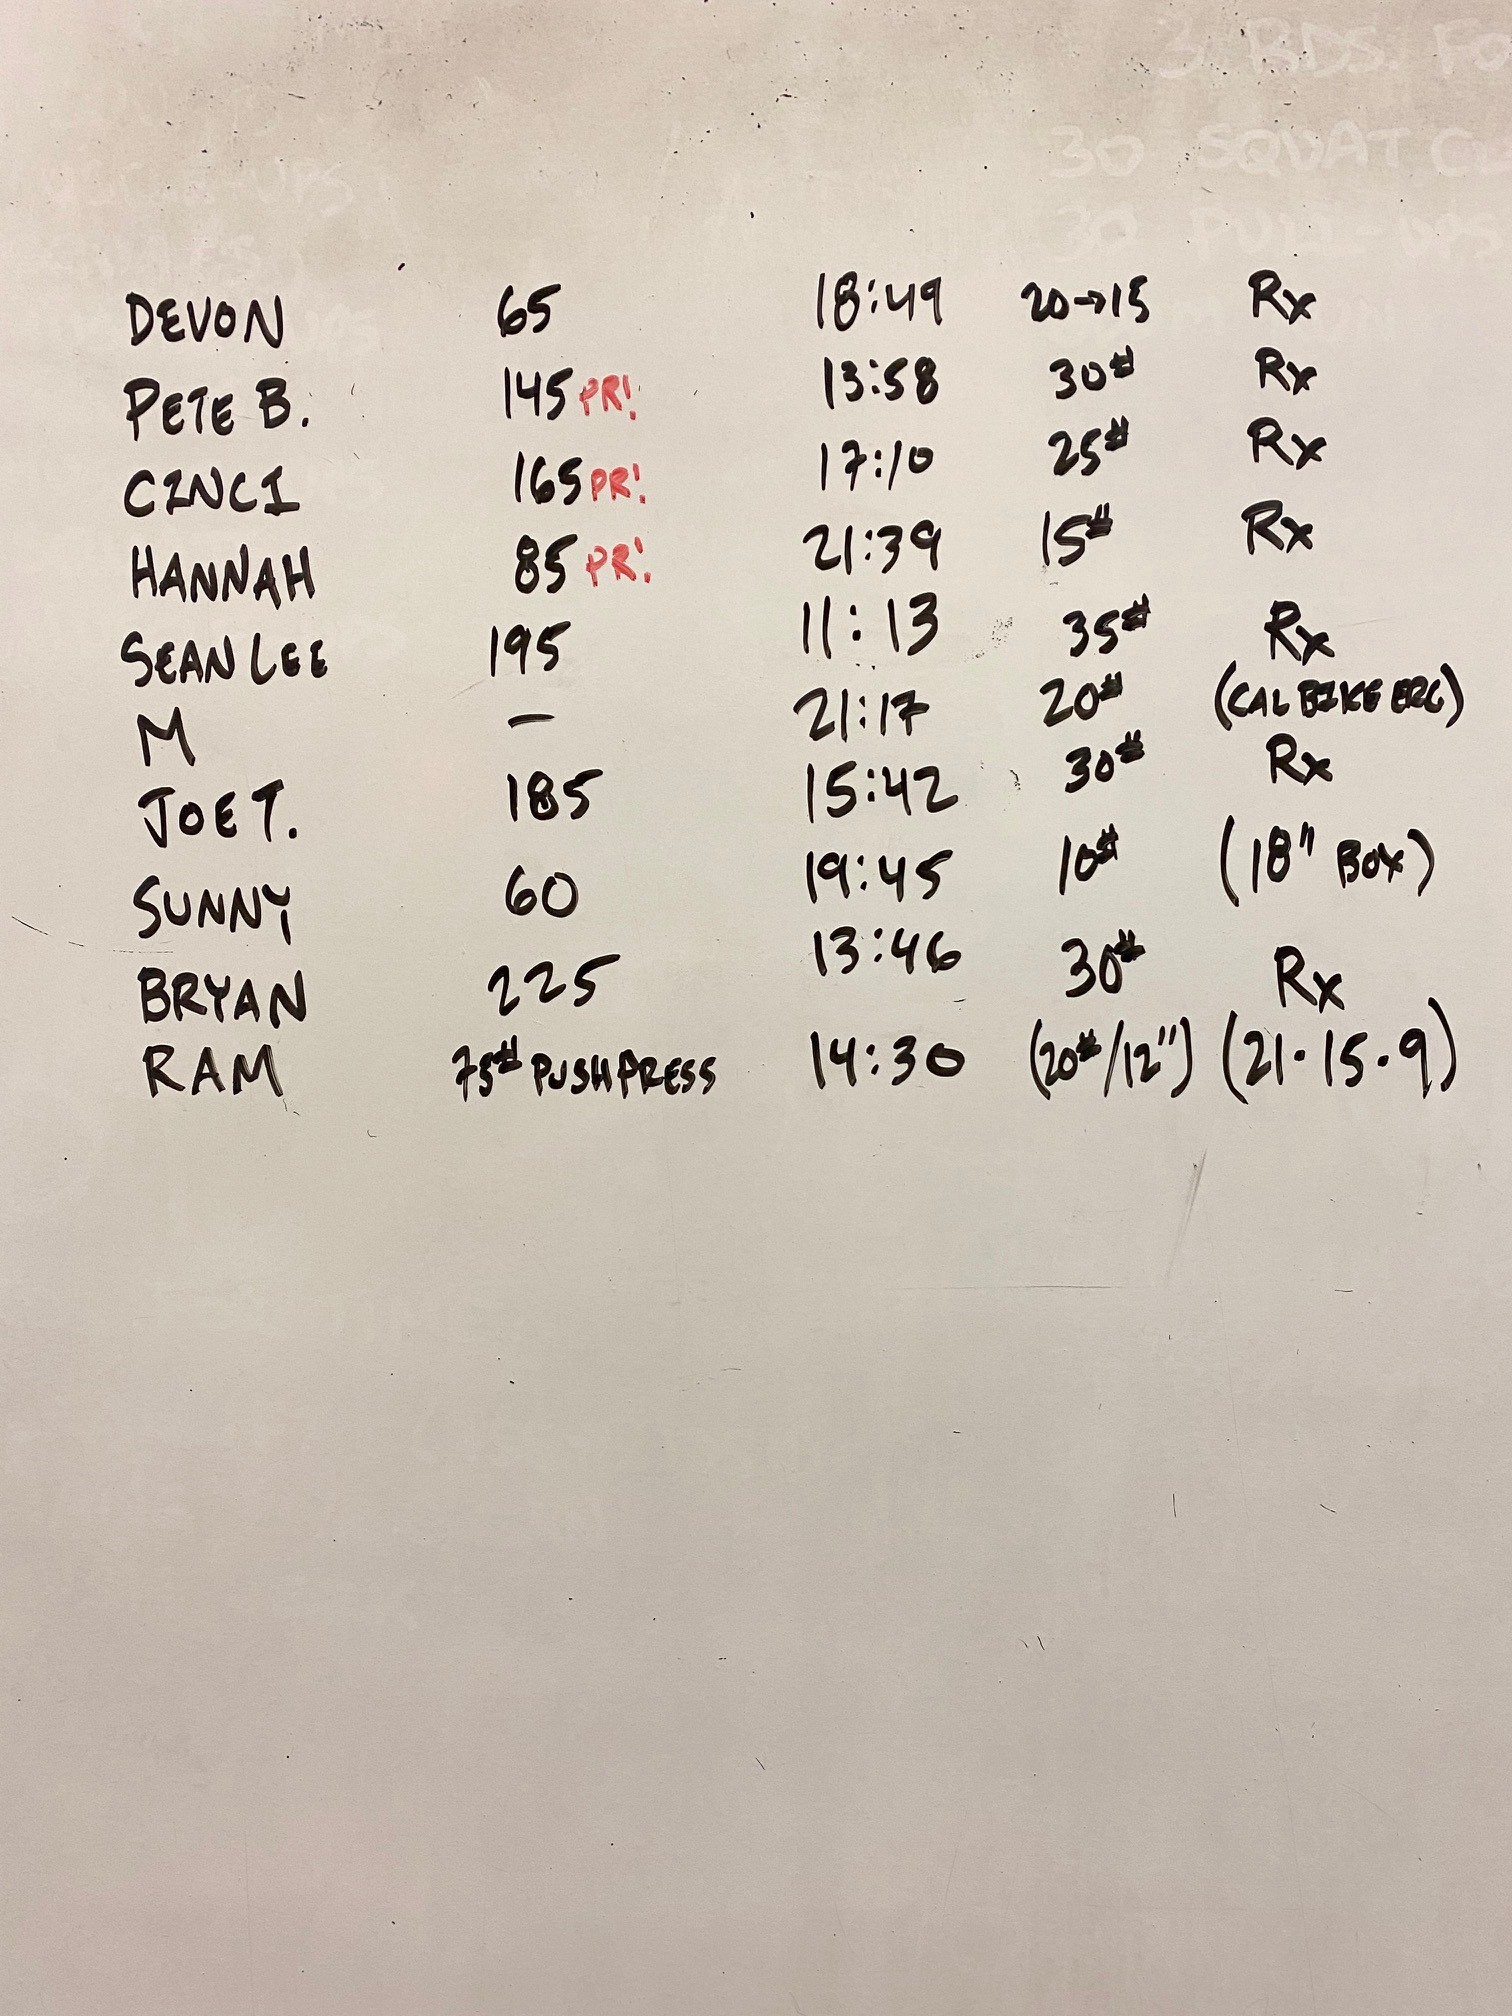 3 RDS. FO
30 SQUAT CL
30 PULL-UPS
DEVON 65 18:49 20→15 Rx
PETE B. 145 PR! 13:58 30# Rx
CINCI 165 PR! 17:10 25# Rx
HANNAH 85 PR! 21:39 15# Rx
SEAN LEE 195 11:13 35# Rx
M — 21:17 20# (CAL BIKE ERG)
JOE T. 185 15:42 30# Rx
SUNNY 60 19:45 10# (18" BOX)
BRYAN 225 13:46 30# Rx
RAM 75# PUSH PRESS 14:30 (20#/12") (21·15·9)